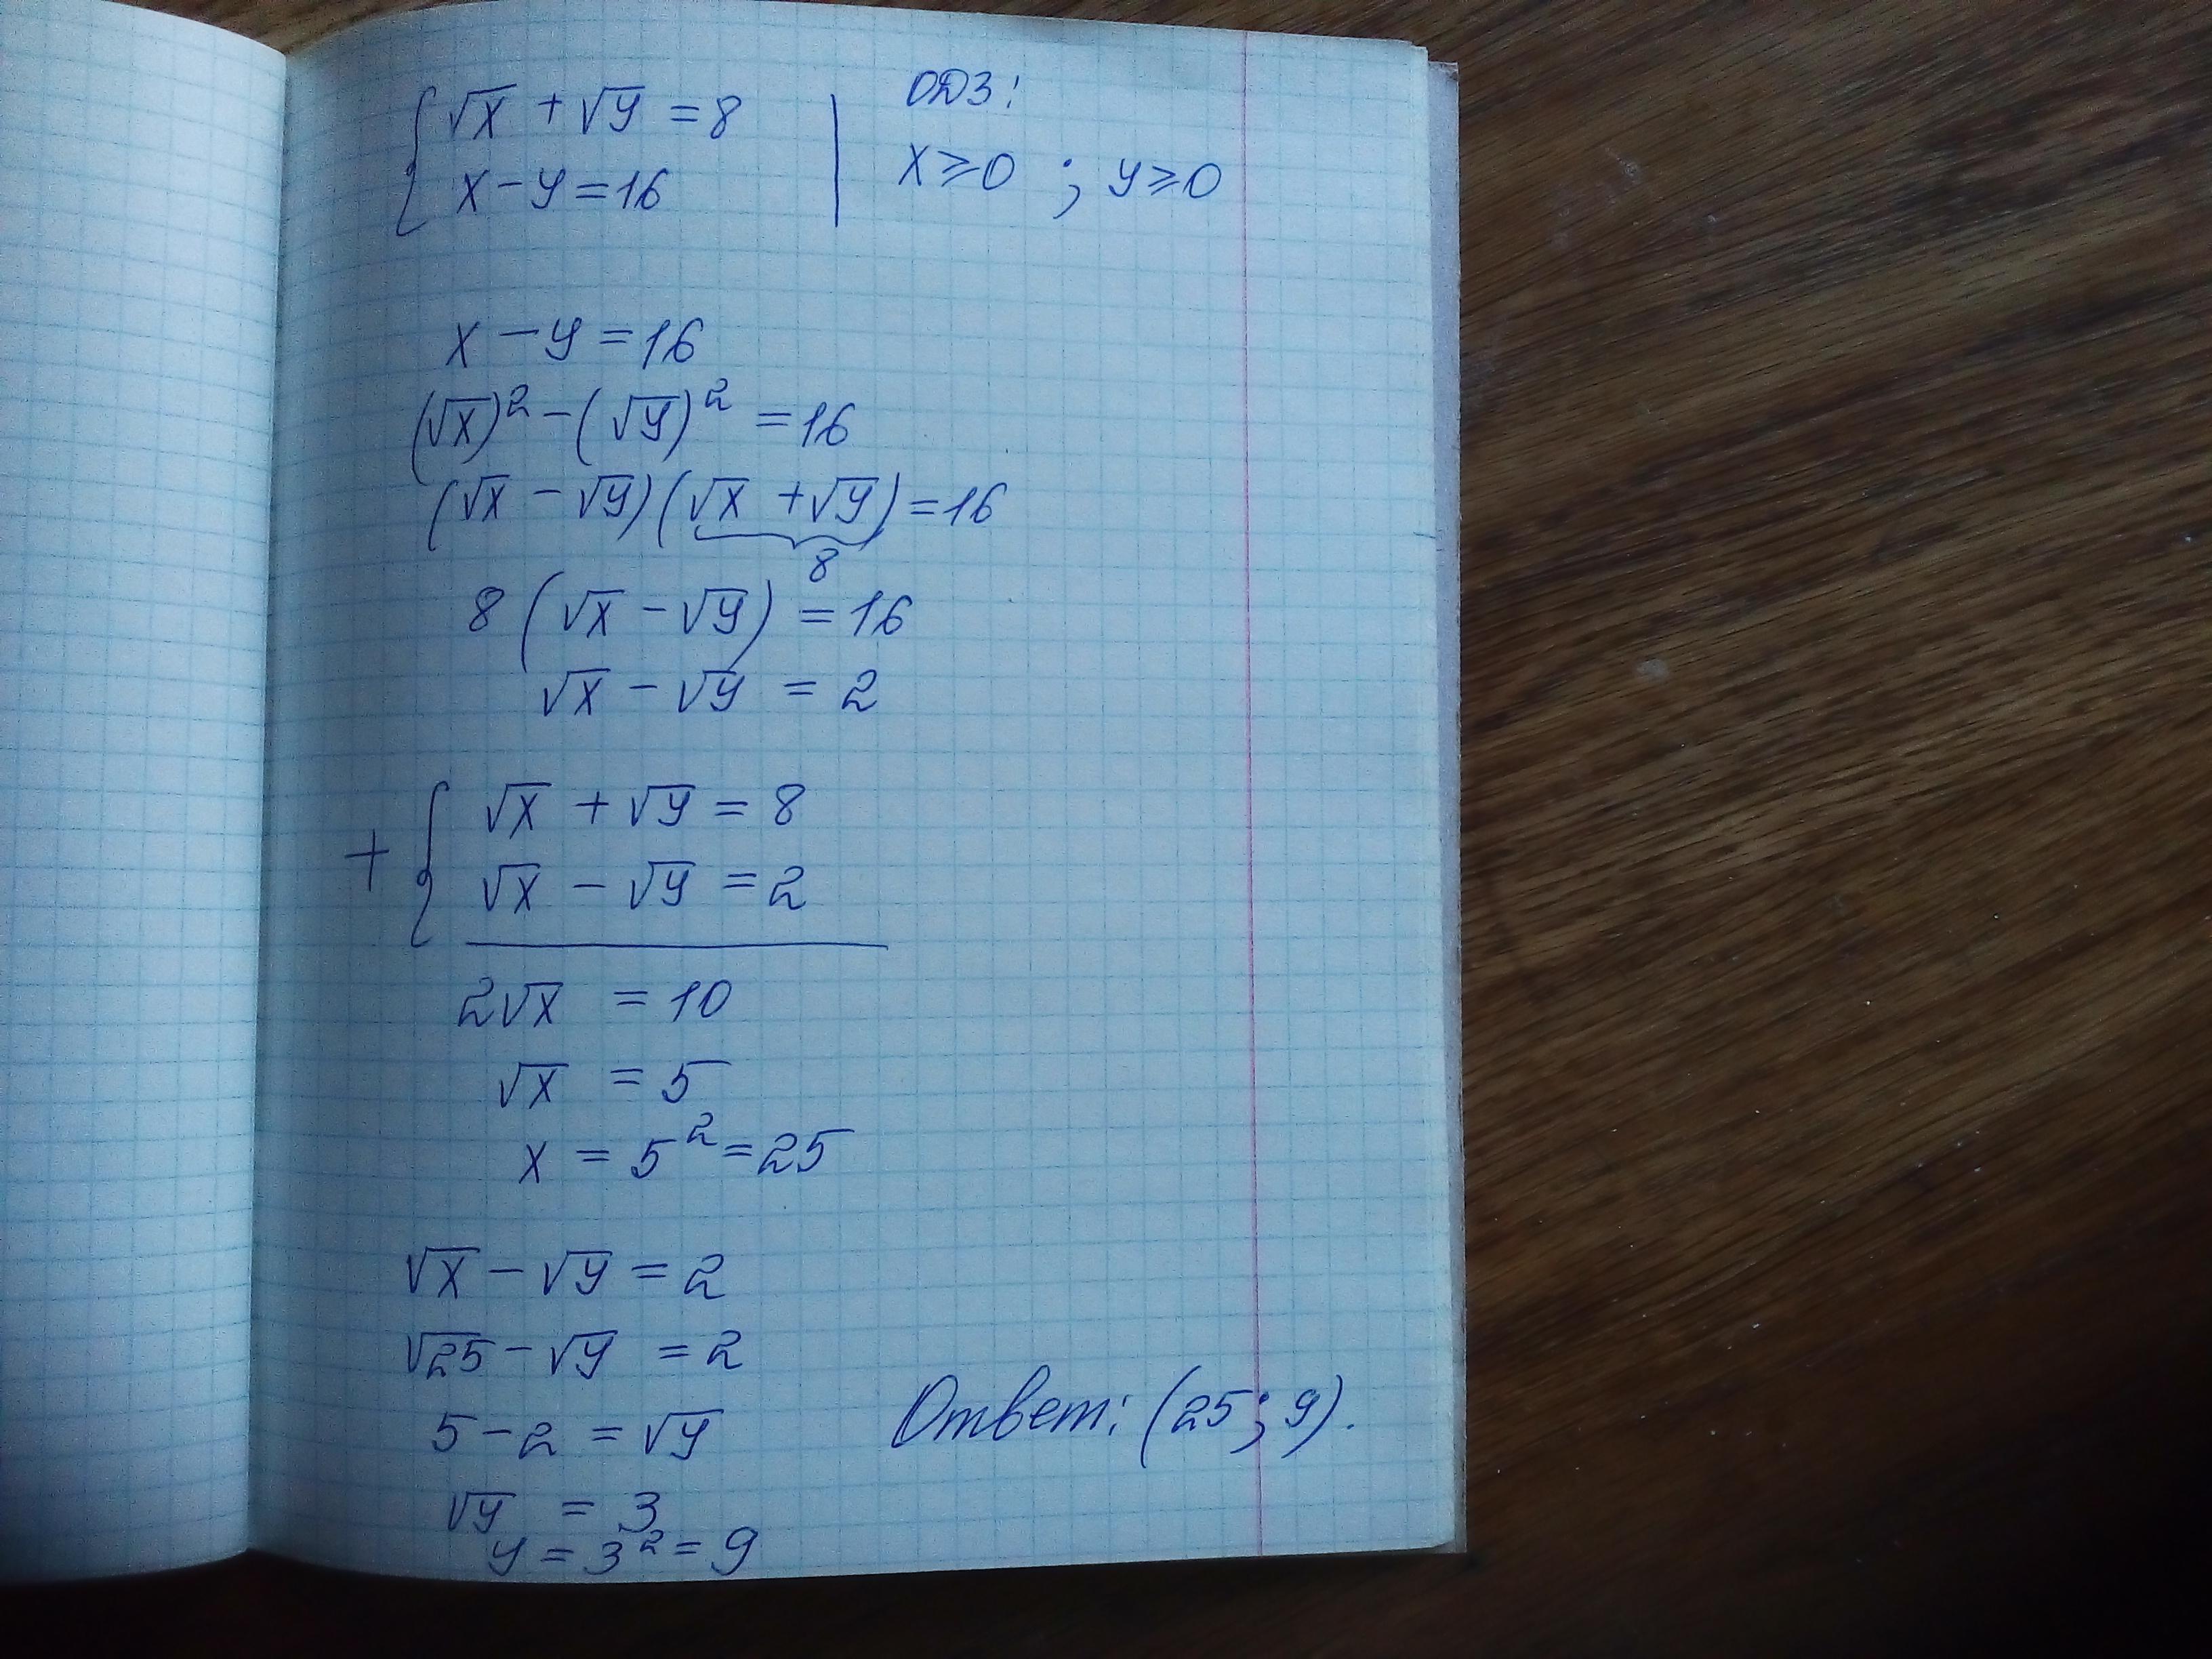 √x + √y = 8
x - y = 16
ОДЗ:
x ≥ 0 ; y ≥ 0
x - y = 16
(√x)² - (√y)² = 16
(√x - √y)(√x + √y) = 16
8
8(√x - √y) = 16
√x - √y = 2
+ { √x + √y = 8
√x - √y = 2
2√x = 10
√x = 5
x = 5² = 25
√x - √y = 2
√25 - √y = 2
5 - 2 = √y
√y = 3
y = 3² = 9
Ответ: (25; 9).